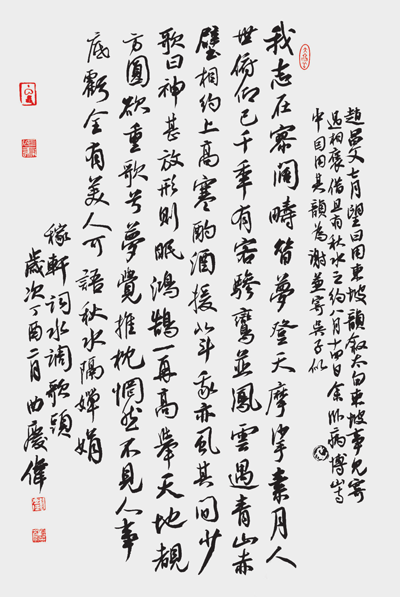 趙昌父七月望日用東坡韻敘太白東坡事見寄
過相褒借且有秋水之約八月十四日余卧病博山寺
中因用其韻為謝並寄吳子似
我志在寥闊疇昔夢登天摩挲素月人
世俯仰已千秊有客驂鸞並鳳雲遇青山赤
壁相約上高寒酌酒援北斗我亦虱其間少
歌曰神甚放形則眠鴻鵠一再高舉天地覩
方圓欲重歌兮夢覺推枕惘然不見人事
底虧全有美人可語秋水隔嬋娟
稼軒詞水調歌頭
歲次丁酉二月曲慶偉